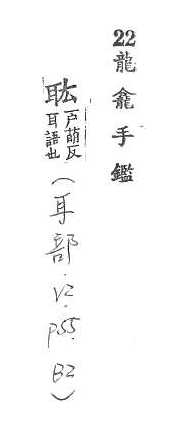 22 龍龕手鑑
耾 戸萌反
耳語也
(耳部.V2.P55.B2)